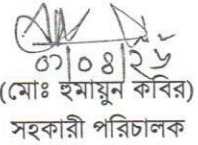 ০৭|০৪|২৬
(মোঃ হুমায়ুন কবির)
সহকারী পরিচালক